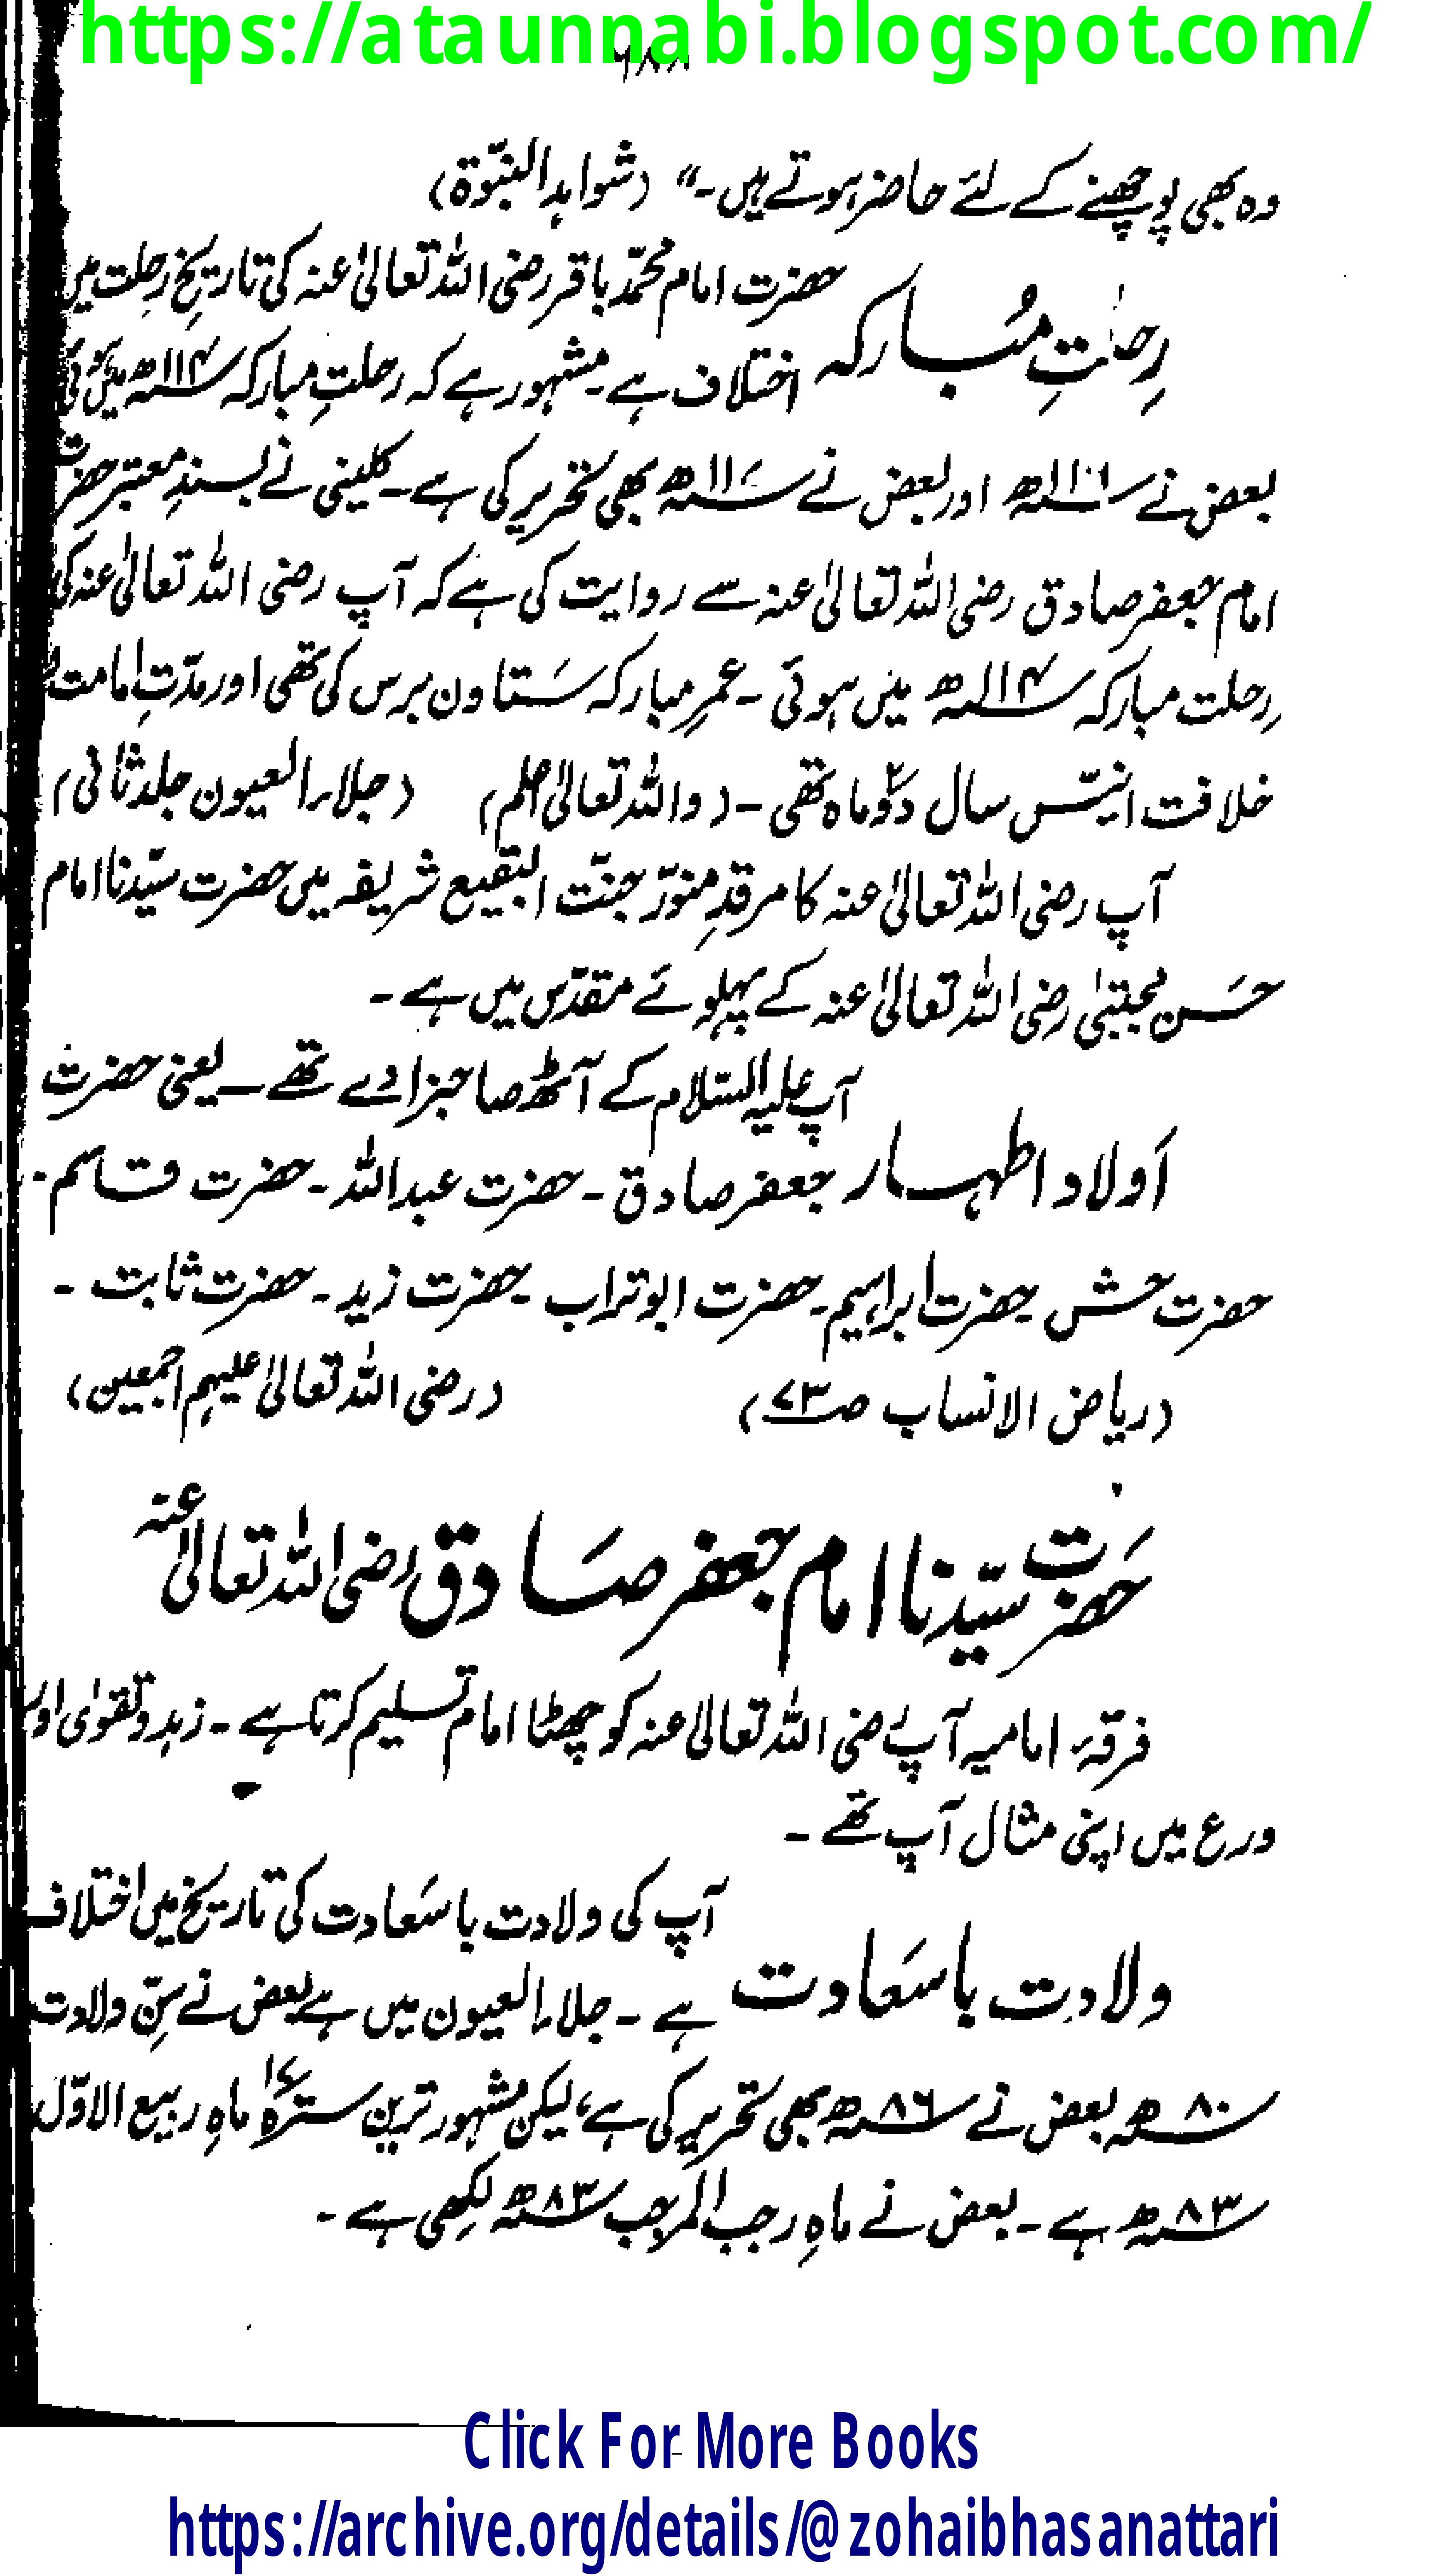 https://ataunnabi.blogspot.com/
۶۸۸
وہ بھی پوچھنے کے لئے حاضر ہوتے ہیں۔“ (شواہد النبوّۃ)
رِحلتِ مُبارکہ
حضرت امام محمّد باقر رضی اللہ تعالیٰ عنہ کی تاریخِ رحلت میں
اختلاف ہے۔ مشہور ہے کہ رحلتِ مبارکہ ۱۱۴ھ میں ہوئی
بعض نے ھ اور بعض نے ۱۱۷ھ بھی تحریر کی ہے۔ کلینی نے بسندِ معتبر حضرت
امام جعفر صادق رضی اللہ تعالیٰ عنہ سے روایت کی ہے کہ آپ رضی اللہ تعالیٰ عنہ کی
رحلت مبارکہ ۱۱۴ھ میں ہوئی۔ عمرِ مبارکہ ستاون برس کی تھی اور مدّتِ امامت و
خلافت انیّس سال دوؔ ماہ تھی۔ (واللہ تعالیٰ اعلم) (جلاء العیون جلد ثانی)
آپ رضی اللہ تعالیٰ عنہ کا مرقدِ منوّر جنّت البقیع شریفہ میں حضرت سیّدنا امام
حَسن مجتبیٰ رضی اللہ تعالیٰ عنہ کے پہلوئے مقدّس میں ہے۔
اَولاد اطہار
آپ علیہ السّلام کے آٹھ صاحبزادے تھے ــ یعنی حضرت
جعفر صادق۔ حضرت عبداللہ۔ حضرت قاسم۔
حضرت حسن۔ حضرت ابراہیم۔ حضرت ابوتراب۔ حضرت زید۔ حضرت ثابت۔
(ریاض الانساب صـ ۷۳) (رضی اللہ تعالیٰ علیہم اجمعین)
حضرت سیّدنا امام جعفر صَادق رضی اللہ تعالیٰ عنہ
فرقۂ امامیہ آپ رضی اللہ تعالیٰ عنہ کو چھٹا امام تسلیم کرتا ہے۔ زہد و تقویٰ اور
ورع میں اپنی مثال آپ تھے۔
ولادت باسَعادت
آپ کی ولادت باسَعادت کی تاریخ میں اختلاف
ہے۔ جلاء العیون میں ہے بعض نے سِنّ ولادت
۸۰ھ بعض نے ۸۶ھ بھی تحریر کی ہے، لیکن مشہور ترین سترہ ۱۷ ماہِ ربیع الاوّل
۸۳ھ ہے۔ بعض نے ماہِ رجب المرجب ۸۳ھ لکھی ہے۔
Click For More Books
https://archive.org/details/@zohaibhasanattari